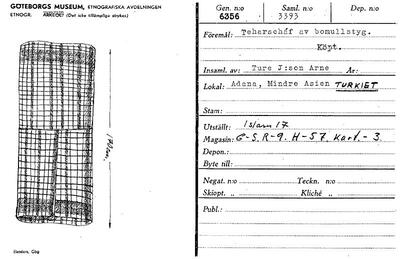 GÖTEBORGS MUSEUM, ETNOGRAFISKA AVDELNINGEN
ETNOGR. ARKEOL. (Det icke tillämpliga strykes)
Elanders, Gbg
Gen. n:o Saml. n:o Dep. n:o
6356 3393
Föremål: Teharschff av bomullstyg.
Köpt.
Insaml. av: Ture J:son Arne År:
Lokal: Adana, Mindre Asien TURKIET
Stam:
Utställt: Islam 17
Magasin: G-S. R-9. H-57. Kart. - 3
Depon.:
Byte till:
Negat. n:o Teckn. n:o
Skiopt. „ Kliché „
Publ.: